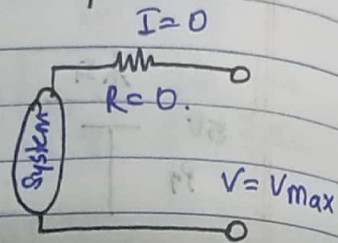 I=0
R=0.
System
V=Vmax